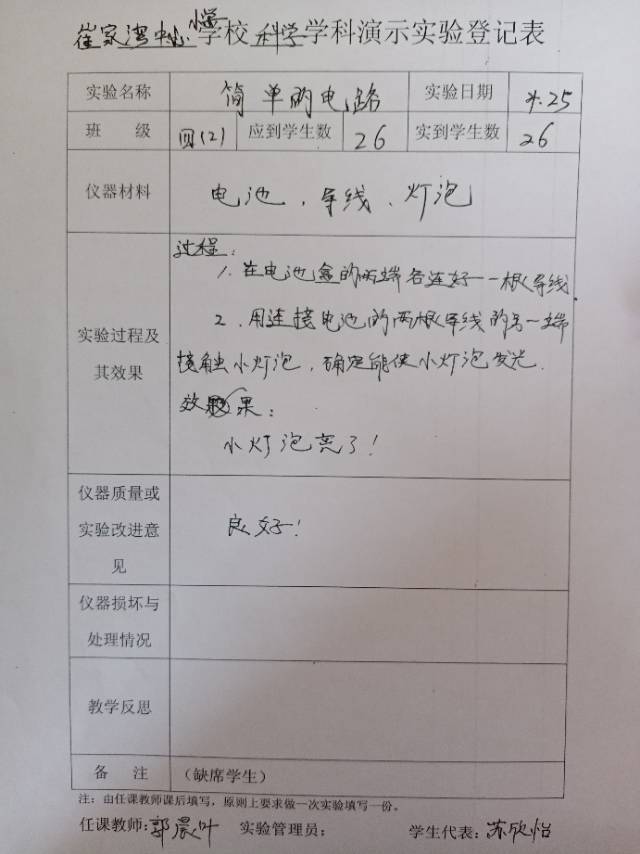 崔家湾中心小学学校科学学科演示实验登记表
实验名称 简单的电路 实验日期 4.25
班 级 四(2) 应到学生数 26 实到学生数 26
仪器材料 电池、导线、灯泡
过程:
1.在电池盒的两端各连好一根导线.
2.用连接电池的两根导线的另一端
实验过程及
接触小灯泡,确定能使小灯泡发光.
其效果
效果:
小灯泡亮了!
仪器质量或
实验改进意 良好!
见
仪器损坏与
处理情况
教学反思
备 注 (缺席学生)
注:由任课教师课后填写,原则上要求做一次实验填写一份。
任课教师:郭晨叶 实验管理员: 学生代表:苏欣怡